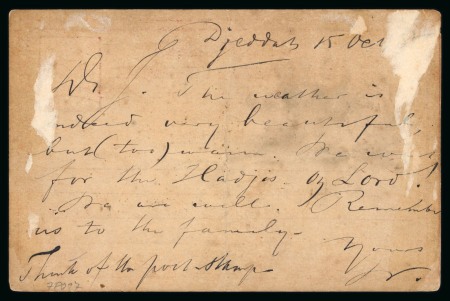 Djeddah 15 Oct
Dr J. The weather is
indeed very beautiful,
but (too) warm. We wait
for the Hadjis. oy Lord!
We are well. Remember
us to the family.
Yours
Think of the post stamp